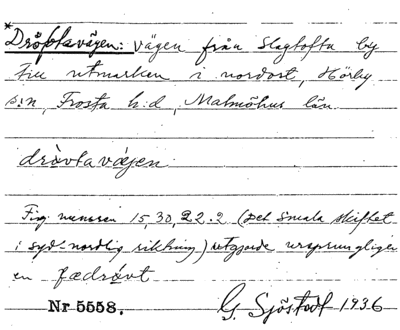 *Dröftavägen: Vägen från Slagtofta by
till utmarken i nordost, Hörby
s:n, Frosta h:d, Malmöhus län.
drövtavägen
Fig. numren 15, 30, 22.2 (Det smala skiftet
i syd-nordlig riktning) utgjorde ursprungligen
en fædrøvt
Nr 5558. G. Sjöstedt 1936